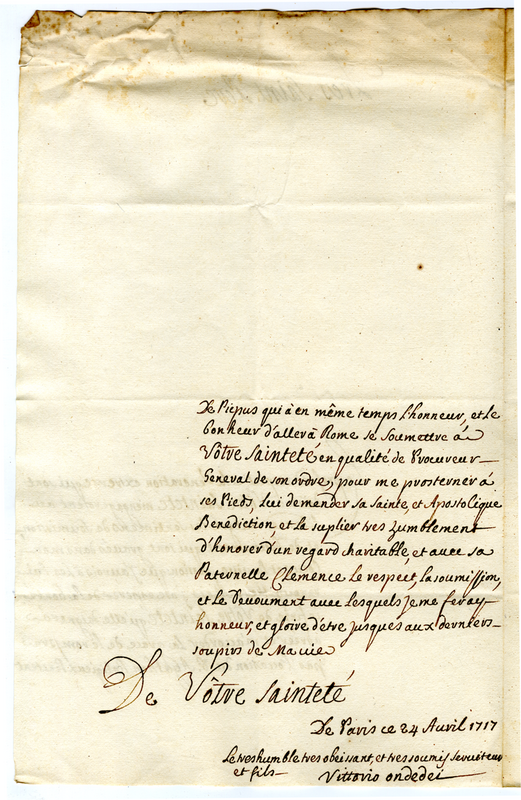 De Picpus qui à en même temps L'honneur, et Le
bonheur d'aller à Rome se soumettre à
Vôtre Sainteté en qualité de Procureur
General de son ordre, pour me prosterner à
ses Pieds, Lui demander sa sainte, et Apostolique
Benediction, et la suplier tres zumblement
d'honorer d'un regard charitable, et avec sa
Paternelle Clemence Le respect, la soumission,
et le Devoument avec lesquels je me feray
honneur, et gloire d'être jusques aux derniers
soupirs de Ma vie
De Vôtre Sainteté
De Paris ce 24 Avril 1717
Le tres humble tres obeissant, et tres soumis serviteur
et fils
Vittorio ondedei